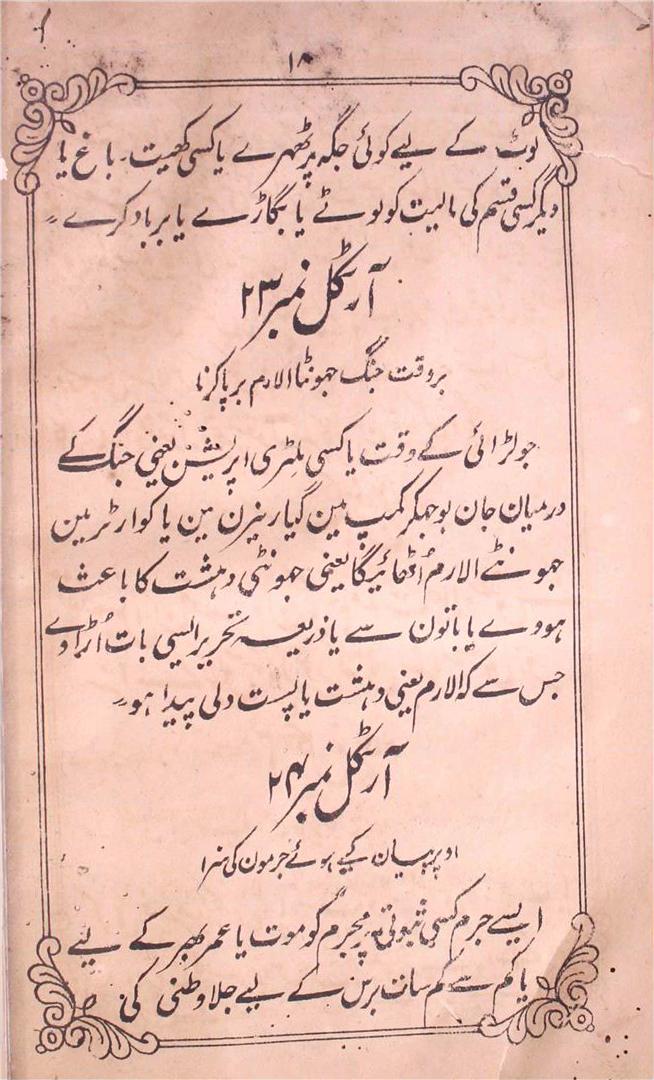 ۱۸
لوٹ کے لیے کوئی جگہ پر ٹھہرے یا کسی کھیت۔ باغ یا
دیگر کسی قسم کی مالیت کو لوٹے یا بگاڑے یا برباد کرے۔
آرٹکل نمبر ۲۳
بروقت جنگ جھوٹا الارم برپا کرنا
جو لڑائی کے وقت یا کسی ملٹری اپریشن یعنی جنگ کے
درمیان جان بوجھکر کمپ مین گیاریزن مین یا کوارٹر مین
جھونٹے الارم اُٹھائیگا یعنی جھونٹی دہشت کا باعث
ہووے یا باتون سے یا ذریعہ تحریر ایسی بات اُڑاوے
جس سے کہ الارم یعنی دہشت یا پست دلی پیدا ہو۔
آرٹکل نمبر ۲۴
اوپر بیان کیے ہوئے جرمون کی سزا
ایسے جرم کسی ثبوتی پر مجرم کو موت یا عمر بھر کے لیے
یا کم سے کم سات برس کے لیے جلاوطنی کی